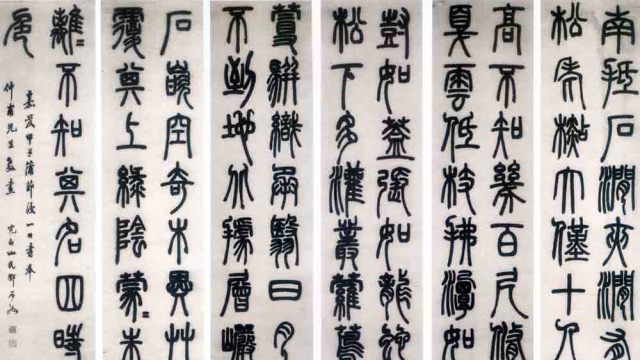 南抵石澗夾澗有
松老杉大僅十人
高不知幾百尺修
戛雲低枝拂潭如
尌如蓋張如龍蛇
松下多灌叢蘿蔦
蔓駢織承翳日月
不到地北據層巘
石嵌空奇木異艸
覆其上綠陰蒙〻朱
離〻不知其名四時
色
嘉慶甲子蒲節後一日書奉
仲甫先生教畫
完白山民鄧石如